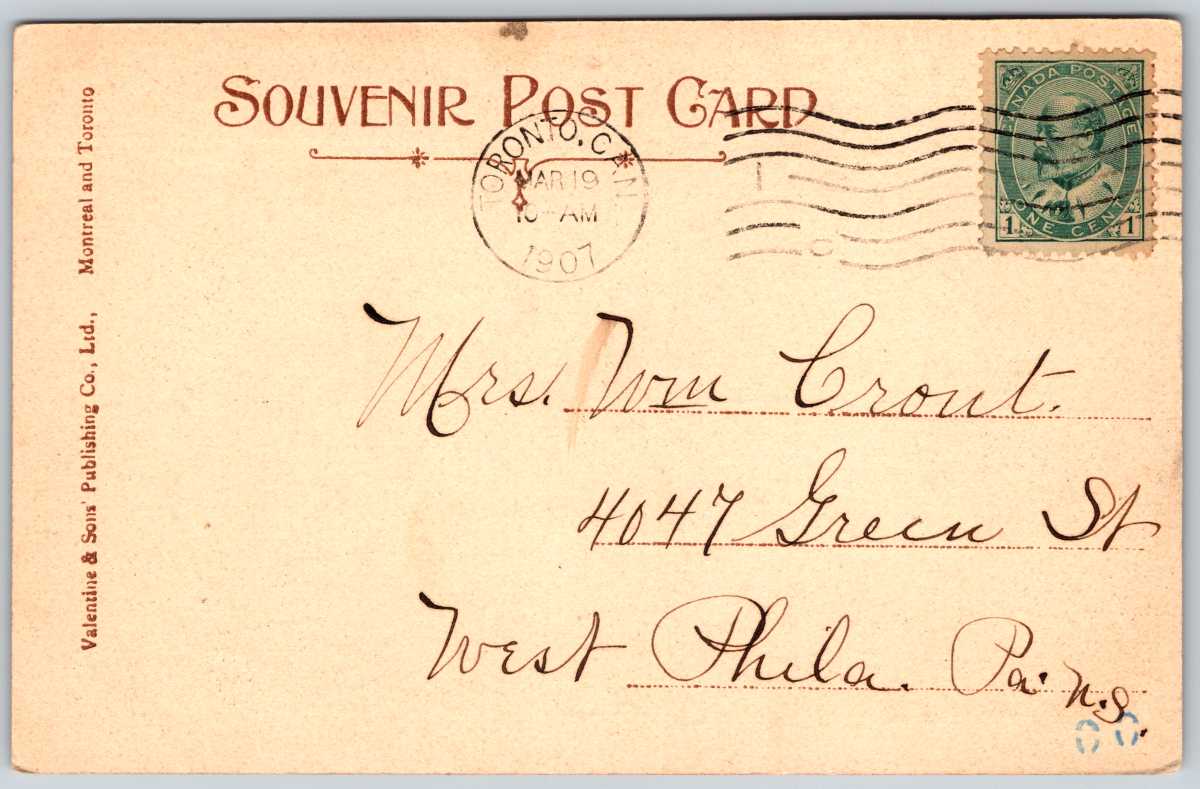 SOUVENIR POST CARD
TORONTO, CAN.
MAR 19
10-AM
1907
CANADA POSTAGE
1 ONE CENT 1
Valentine & Sons' Publishing Co., Ltd., Montreal and Toronto
Mrs. Wm Crout.
4047 Green St
West Phila. Pa.